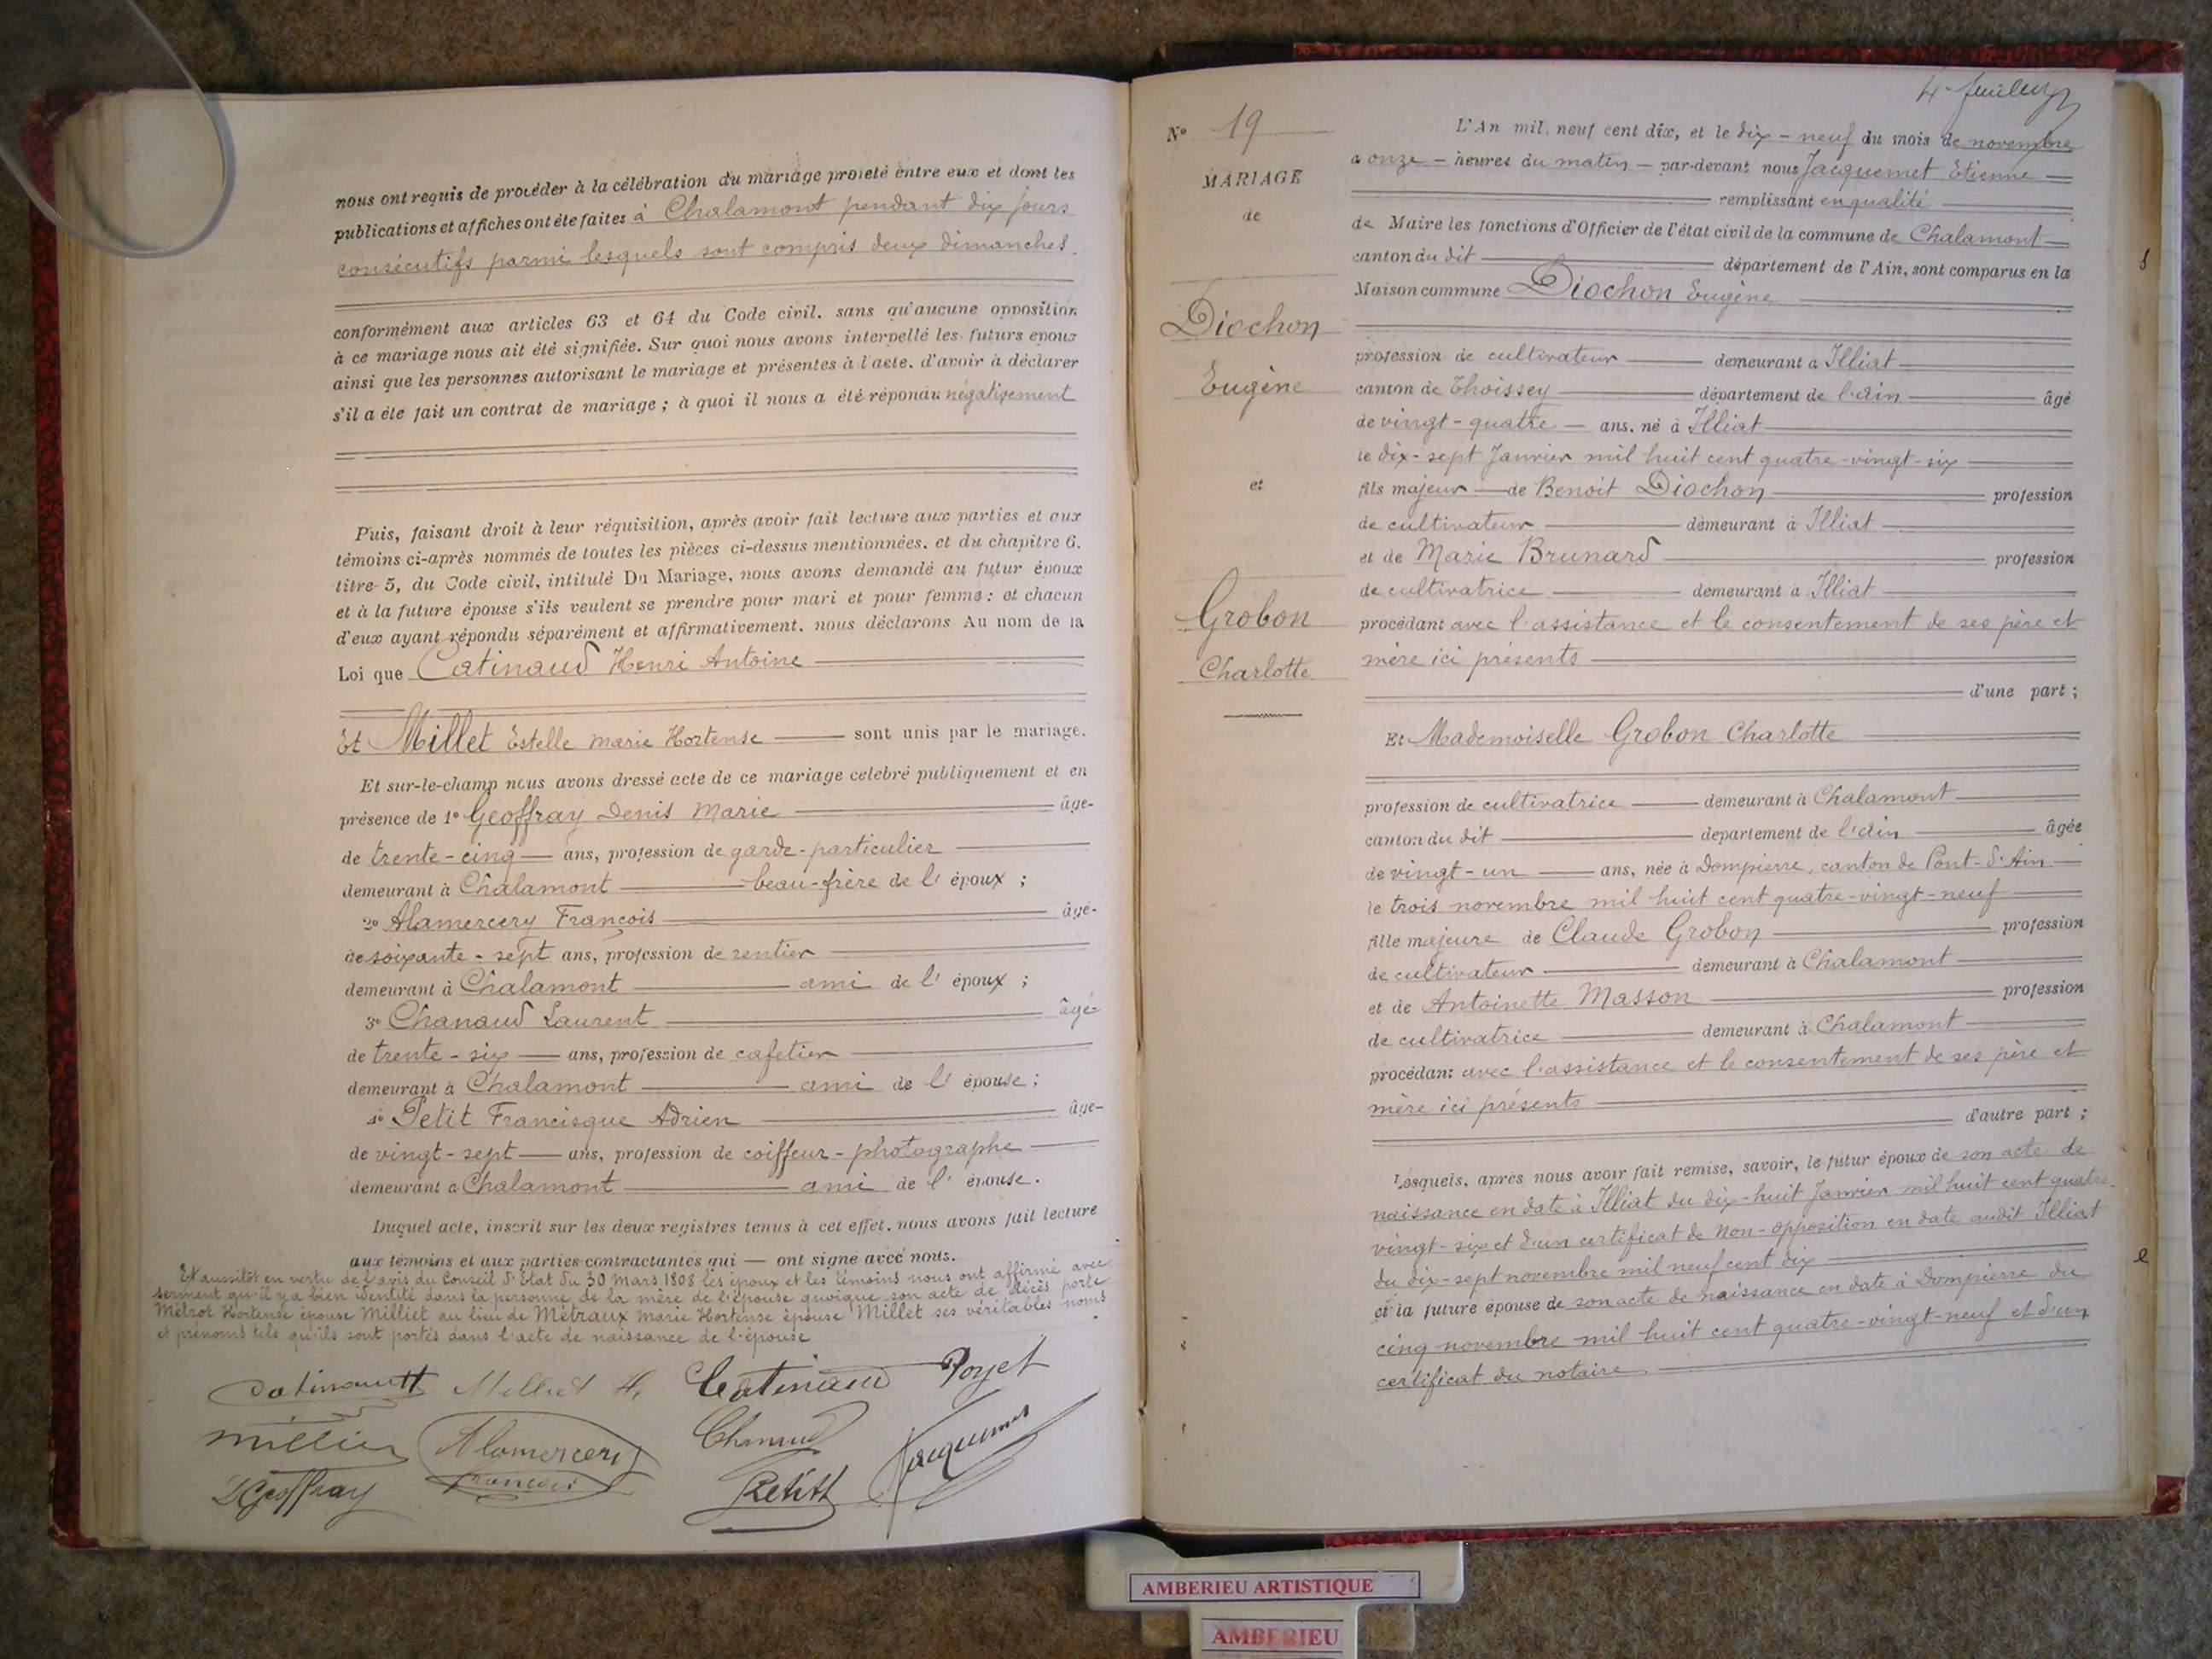 nous ont requis de procéder à la célébration du mariage projeté entre eux et dont les
publications et affiches ont été faites à Chalamont pendant dix jours
consécutifs parmi lesquels sont compris deux dimanches
conformément aux articles 63 et 64 du Code civil. sans qu'aucune opposition
à ce mariage nous ait été signifiée. Sur quoi nous avons interpellé les futurs époux
ainsi que les personnes autorisant le mariage et présentes à l'acte. d'avoir à déclarer
s'il a été fait un contrat de mariage ; à quoi il nous a été répondu négativement
Puis, faisant droit à leur réquisition, après avoir fait lecture aux parties et aux
témoins ci-après nommés de toutes les pièces ci-dessus mentionnées. et du chapitre 6.
titre 5, du Code civil, intitulé Du Mariage, nous avons demandé au futur époux
et à la future épouse s'ils veulent se prendre pour mari et pour femme : et chacun
d'eux ayant répondu séparément et affirmativement. nous déclarons Au nom de la
Loi que Catinaud Henri Antoine
Et Millet Estelle Marie Hortense sont unis par le mariage.
Et sur-le-champ nous avons dressé acte de ce mariage célébré publiquement et en
présence de 1° Geoffray Denis Marie âgé
de trente-cinq ans, profession de garde-particulier
demeurant à Chalamont beau-frère de l'époux ;
2° Alamercery François âgé
de soixante-sept ans, profession de rentier
demeurant à Chalamont ami de l'époux ;
3° Chanaud Laurent âgé
de trente-six ans, profession de cafetier
demeurant à Chalamont ami de l'épouse ;
4° Petit Francisque Adrien âgé
de vingt-sept ans, profession de coiffeur-photographe
demeurant à Chalamont ami de l'épouse.
Duquel acte, inscrit sur les deux registres tenus à cet effet. nous avons fait lecture
aux témoins et aux parties contractantes qui — ont signé avec nous.
Et aussitôt en vertu de l'avis du Conseil d'Etat du 30 mars 1808 les époux et les témoins nous ont affirmé avec
serment qu'il y a bien identité dans la personne de la mère de l'épouse quoique son acte de décès porte
Métrot Hortense épouse Milliet au lieu de Métraux Marie Hortense épouse Millet ses véritables noms
et prénoms tels qu'ils sont portés dans l'acte de naissance de l'épouse
Catinaud Poyet
Alamercery Chanaud Jacquemet
François
D Geoffray Petit
N° 19
MARIAGE
de
Diochon
Eugène
et
Grobon
Charlotte
L'An mil neuf cent dix, et le dix-neuf du mois de novembre
à onze heures du matin par-devant nous Jacquemet Etienne
remplissant en qualité
de Maire les fonctions d'Officier de l'état civil de la commune de Chalamont
canton du dit département de l'Ain, sont comparus en la
Maison commune Diochon Eugène
profession de cultivateur demeurant à Illiat
canton de Thoissey département de l'Ain âgé
de vingt-quatre ans. né à Illiat
le dix-sept Janvier mil huit cent quatre-vingt-six
fils majeur de Benoit Diochon profession
de cultivateur demeurant à Illiat
et de Marie Brunard profession
de cultivatrice demeurant à Illiat
procédant avec l'assistance et le consentement de ses père et
mère ici présents
d'une part ;
Et Mademoiselle Grobon Charlotte
profession de cultivatrice demeurant à Chalamont
canton du dit département de l'Ain âgée
de vingt-un ans, née à Dompierre, canton de Pont-d'Ain
le trois novembre mil huit cent quatre-vingt-neuf
fille majeure de Claude Grobon profession
de cultivateur demeurant à Chalamont
et de Antoinette Masson profession
de cultivatrice demeurant à Chalamont
procédant avec l'assistance et le consentement de ses père et
mère ici présents
d'autre part ;
Lesquels, après nous avoir fait remise, savoir, le futur époux de son acte de
naissance en date à Illiat du dix-huit Janvier mil huit cent quatre-
vingt-six et d'un certificat de non-opposition en date audit Illiat
du dix-sept novembre mil neuf cent dix
et la future épouse de son acte de naissance en date à Dompierre du
cinq novembre mil huit cent quatre-vingt-neuf et d'un
certificat du notaire
AMBERIEU ARTISTIQUE
AMBERIEU